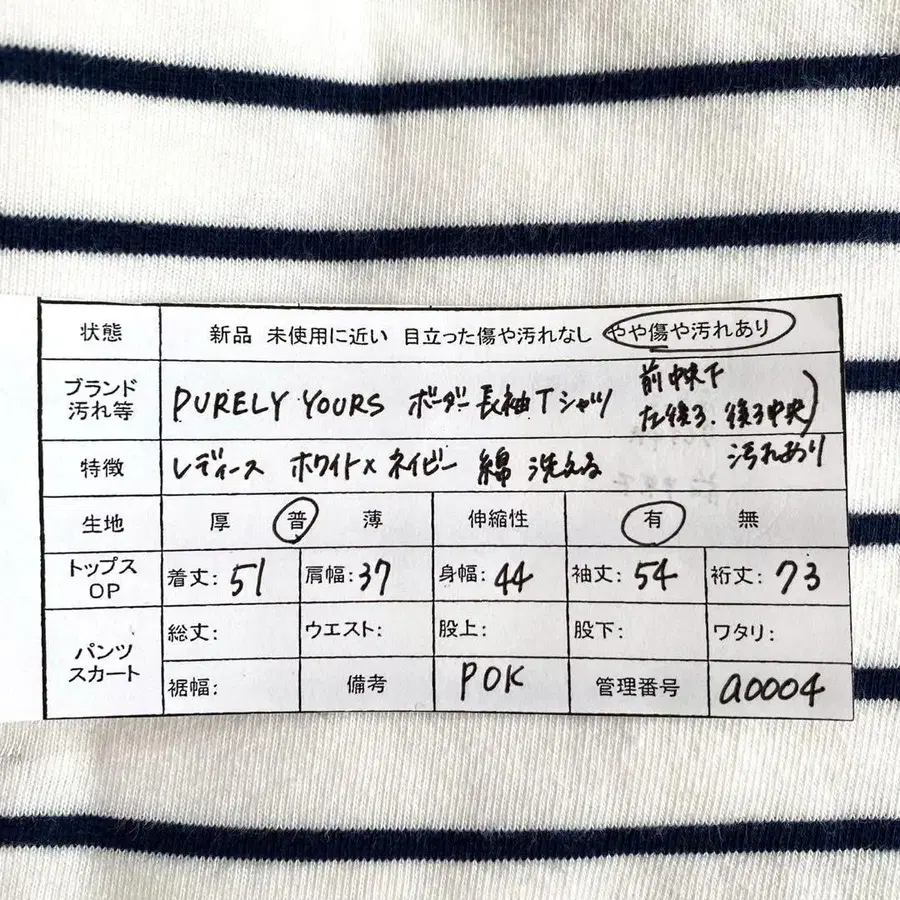 状態 新品 未使用に近い 目立った傷や汚れなし やや傷や汚れあり
ブランド 汚れ等 PURELY YOURS ボーダー長袖Tシャツ 前中味下
左後ろ、後ろ中央)
汚れあり
特徴 レディース ホワイト×ネイビー 綿 洗える
生地 厚 普 薄 伸縮性 有 無
トップス OP 着丈: 51 肩幅: 37 身幅: 44 袖丈: 54 裄丈: 73
パンツ スカート 総丈: ウエスト: 股上: 股下: ワタリ:
裾幅: 備考 POK 管理番号 a0004